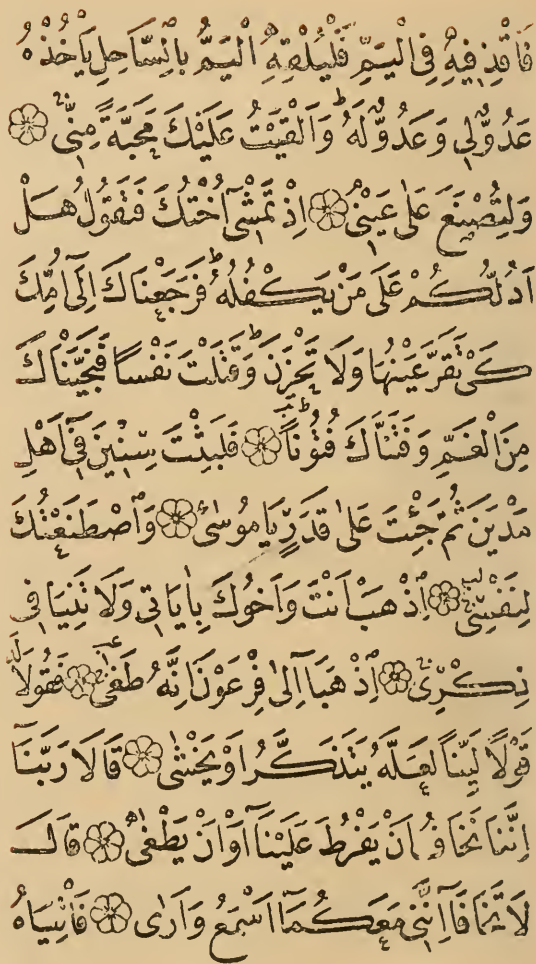 فَاقْذِفِيهِ فِى الْيَمِّ فَلْيُلْقِهِ الْيَمُّ بِالسَّاحِلِ يَأْخُذْهُ
عَدُوٌّ لِى وَعَدُوٌّ لَهُ وَاَلْقَيْتُ عَلَيْكَ مَحَبَّةً مِنِّى
وَلِتُصْنَعَ عَلٰى عَيْنِى اِذْ تَمْشِىٓ اُخْتُكَ فَتَقُولُ هَلْ
اَدُلُّكُمْ عَلٰى مَنْ يَكْفُلُهُ فَرَجَعْنَاكَ اِلٰٓى اُمِّكَ
كَىْ تَقَرَّ عَيْنُهَا وَلَا تَحْزَنَ وَقَتَلْتَ نَفْسًا فَنَجَّيْنَاكَ
مِنَ الْغَمِّ وَفَتَنَّاكَ فُتُونًا فَلَبِثْتَ سِنِينَ فِىٓ اَهْلِ
مَدْيَنَ ثُمَّ جِئْتَ عَلٰى قَدَرٍ يَا مُوسٰى وَاصْطَنَعْتُكَ
لِنَفْسِى اِذْهَبْ اَنْتَ وَاَخُوكَ بِاٰيَاتِى وَلَا تَنِيَا فِى
ذِكْرِى اِذْهَبَآ اِلٰى فِرْعَوْنَ اِنَّهُ طَغٰى فَقُولَا لَهُ
قَوْلًا لَيِّنًا لَعَلَّهُ يَتَذَكَّرُ اَوْ يَخْشٰى قَالَا رَبَّنَآ
اِنَّنَا نَخَافُ اَنْ يَفْرُطَ عَلَيْنَآ اَوْ اَنْ يَطْغٰى قَالَ
لَا تَخَافَآ اِنَّنِى مَعَكُمَآ اَسْمَعُ وَاَرٰى فَاْتِيَاهُ